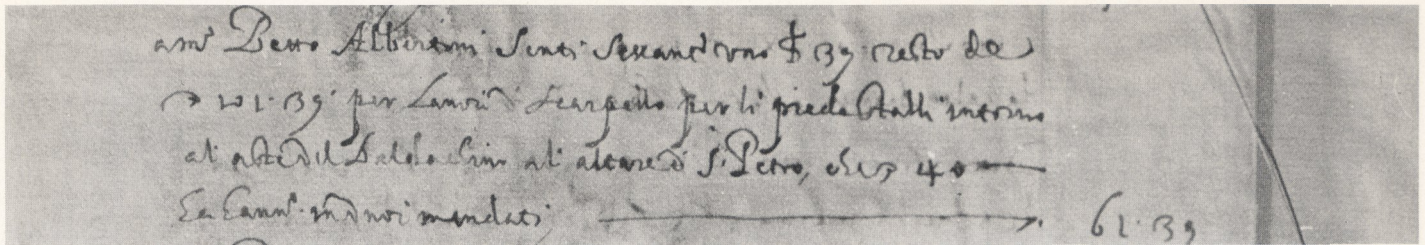 a mº Petro Albertini scuti sessant'uno ∇ 39 resto de
∇ 101:39 per lavori di scarpello per li piedestalli intorno
al aste del Baldachino al altare di S. Pietro, che ∇ 40
ha hauti in doi mandati 61:39